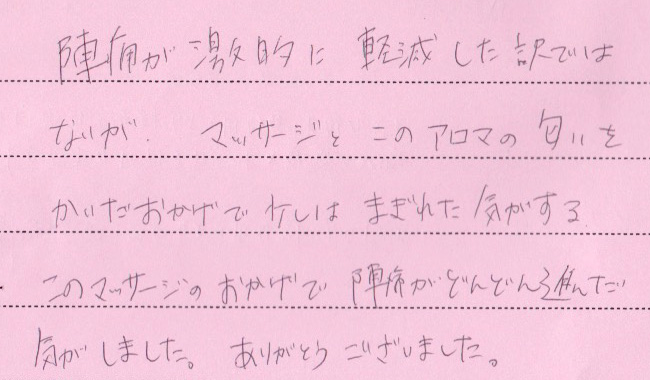 陣痛が激的に軽減した訳では
ないが、マッサージとこのアロマの匂いを
かいだおかげで少しはまぎれた気がする
このマッサージのおかげで陣痛がどんどん進んだ
気がしました。ありがとうございました。